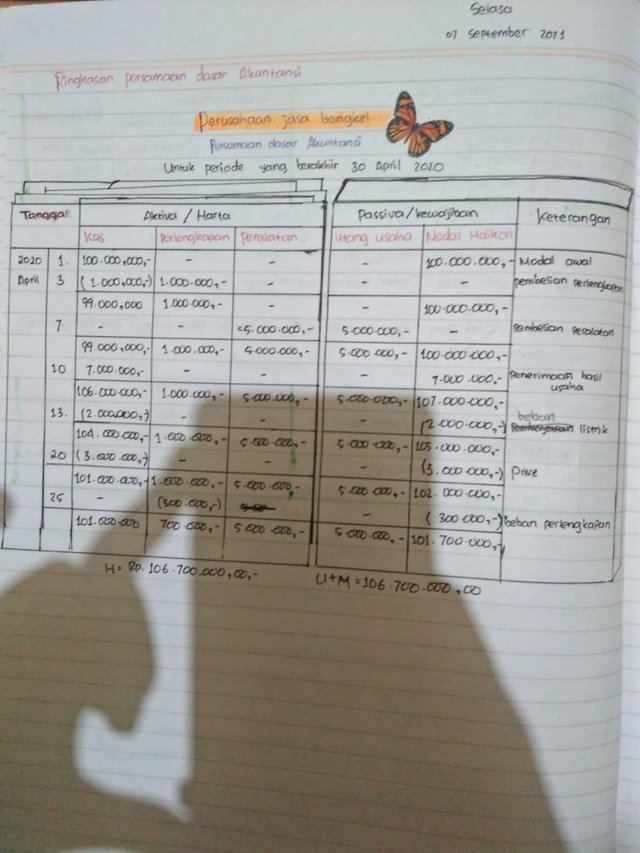 Selasa
07 September 2021
Ringkasan persamaan dasar Akuntansi
Perusahaan jasa bengkel
Persamaan dasar Akuntansi
Untuk periode yang berakhir 30 April 2020
Tanggal Aktiva / Harta Passiva/kewajiban Keterangan
Kas Perlengkapan Peralatan Utang usaha Modal Haikal
2020 1. 100.000,000,- - - - 100.000.000,- Modal awal
April 3 (1.000,000,-) 1.000.000,- - - - pembelian perlengkapan
99.000,000 1.000.000,- - - 100.000.000,-
7 - - 5.000.000,- 5.000.000,- - pembelian peralatan
99.000,000,- 1.000.000,- 5.000.000,- 5.000.000,- 100.000.000,-
10 7.000.000,- - - - 7.000.000,- penerimaan hasil
usaha
106.000.000,- 1.000.000,- 5.000.000,- 5.000.000,- 107.000.000,-
13. (2.000.000,-) - - - (2.000.000,-) beban
listrik
104.000.000,- 1.000.000,- 5.000.000,- 5.000.000,- 105.000.000,-
20 (3.000.000,-) - - - (3.000.000,-) prive
101.000.000,- 1.000.000,- 5.000.000,- 5.000.000,- 102.000.000,-
25 - (300.000,-) - (300.000,-) beban perlengkapan
101.000.000 700.000,- 5.000.000,- 5.000.000,- 101.700.000,-
H = Rp. 106.700.000,00,- U+M = 106.700.000,00